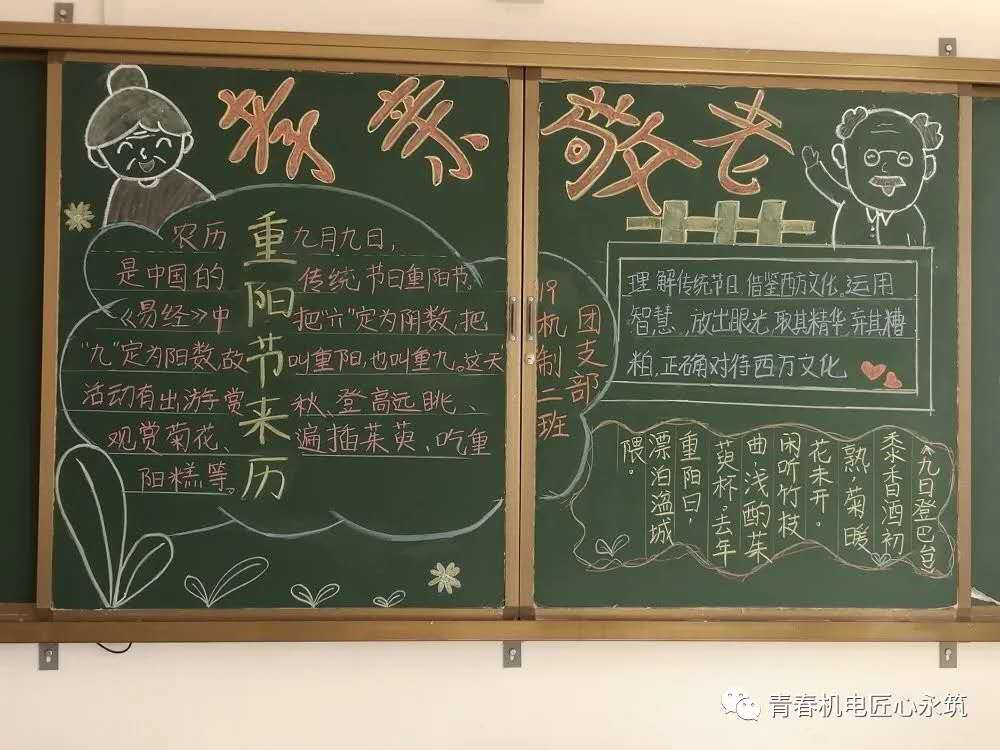 孝亲敬老
重阳节来历
农历九月九日,
是中国的传统节日重阳节。
《易经》中把“六”定为阴数,把
“九”定为阳数,故叫重阳,也叫重九。这天
活动有出游赏秋、登高远眺、
观赏菊花、遍插茱萸、吃重
阳糕等。
19机制二班
团支部
理解传统节日、借鉴西方文化。运用
智慧、放出眼光,取其精华弃其糟
粕,正确对待西方文化
《九日登巴台》
黍香酒初
熟,菊暖
花未开。
闲听竹枝
曲,浅酌茱
萸杯。去年
重阳日,
漂泊湓城
隈。
青春机电匠心永筑